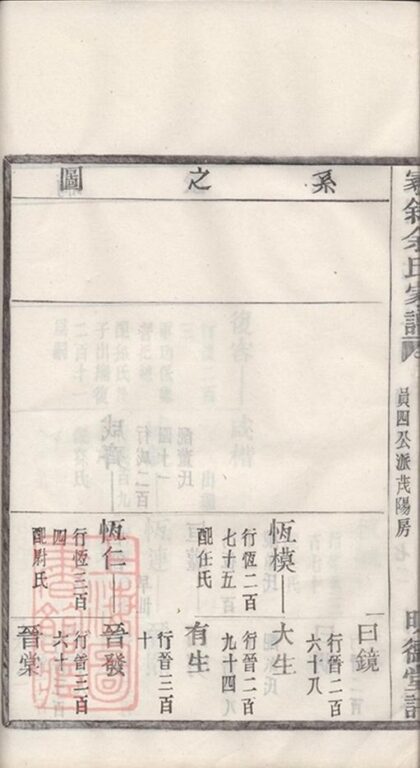 余氏家譜
員四公派茂陽房
系之圖
恆模
行恆二百
七十五
配任氏
恆仁
行恆三百
四
配尉氏
曰鏡
行晉二百
六十八
大生
行晉二百
九十四
有生
行晉三百
十
晉發
行晉二百
六十
晉棠